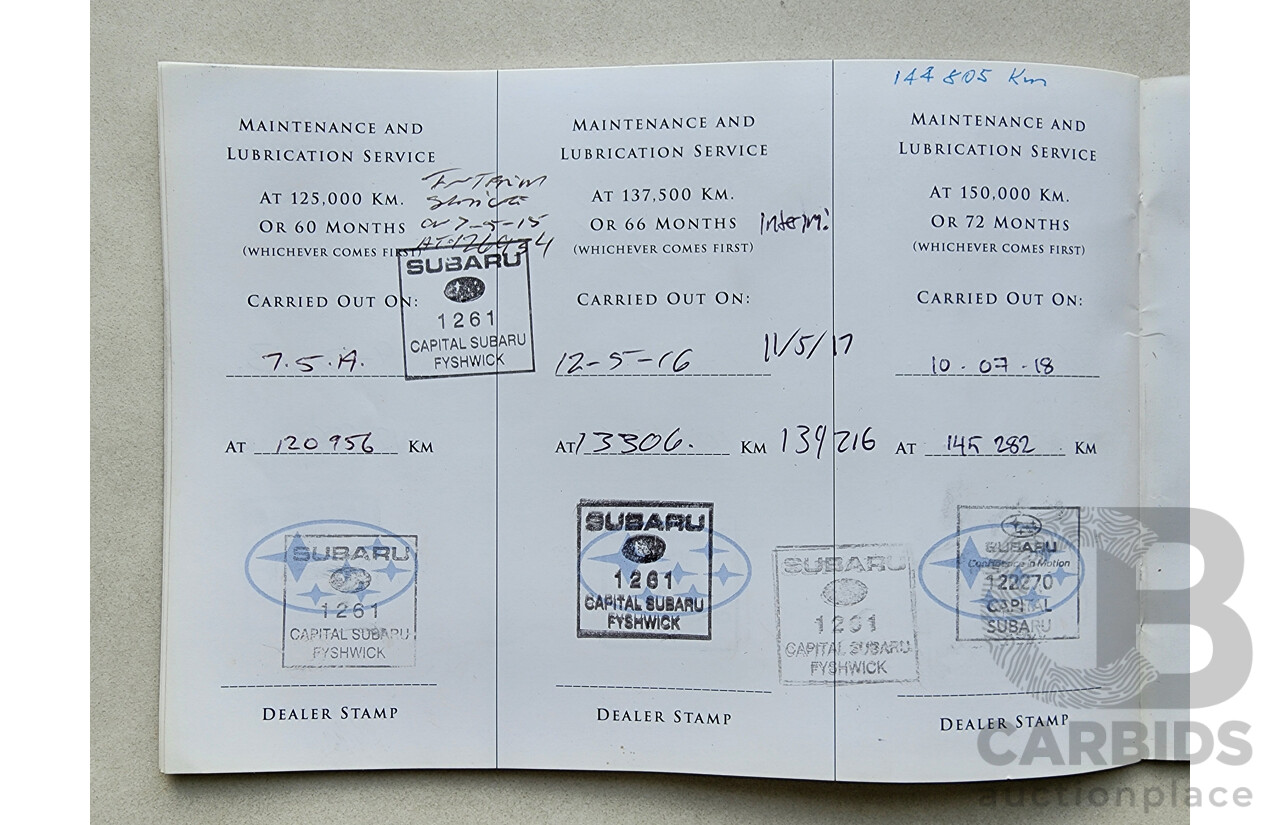 MAINTENANCE AND
LUBRICATION SERVICE
AT 125,000 KM.
OR 60 MONTHS
(WHICHEVER COMES FIRST)
INTERIM
SERVICE
ON 7-5-15
SUBARU
1261
CAPITAL SUBARU
FYSHWICK
CARRIED OUT ON:
AT 120 956 KM
SUBARU
1261
CAPITAL SUBARU
FYSHWICK
DEALER STAMP
MAINTENANCE AND
LUBRICATION SERVICE
AT 137,500 KM.
OR 66 MONTHS
(WHICHEVER COMES FIRST)
CARRIED OUT ON:
12-5-16
11/5/17
AT 13306. KM
139216
SUBARU
1261
CAPITAL SUBARU
FYSHWICK
SUBARU
1261
CAPITAL SUBARU
FYSHWICK
DEALER STAMP
144 805 Km
MAINTENANCE AND
LUBRICATION SERVICE
AT 150,000 KM.
OR 72 MONTHS
(WHICHEVER COMES FIRST)
CARRIED OUT ON:
10.07.18
AT 145 282 KM
SUBARU
Confidence in Motion
122270
CAPITAL
SUBARU
DEALER STAMP
CARBIDS
auctionplace